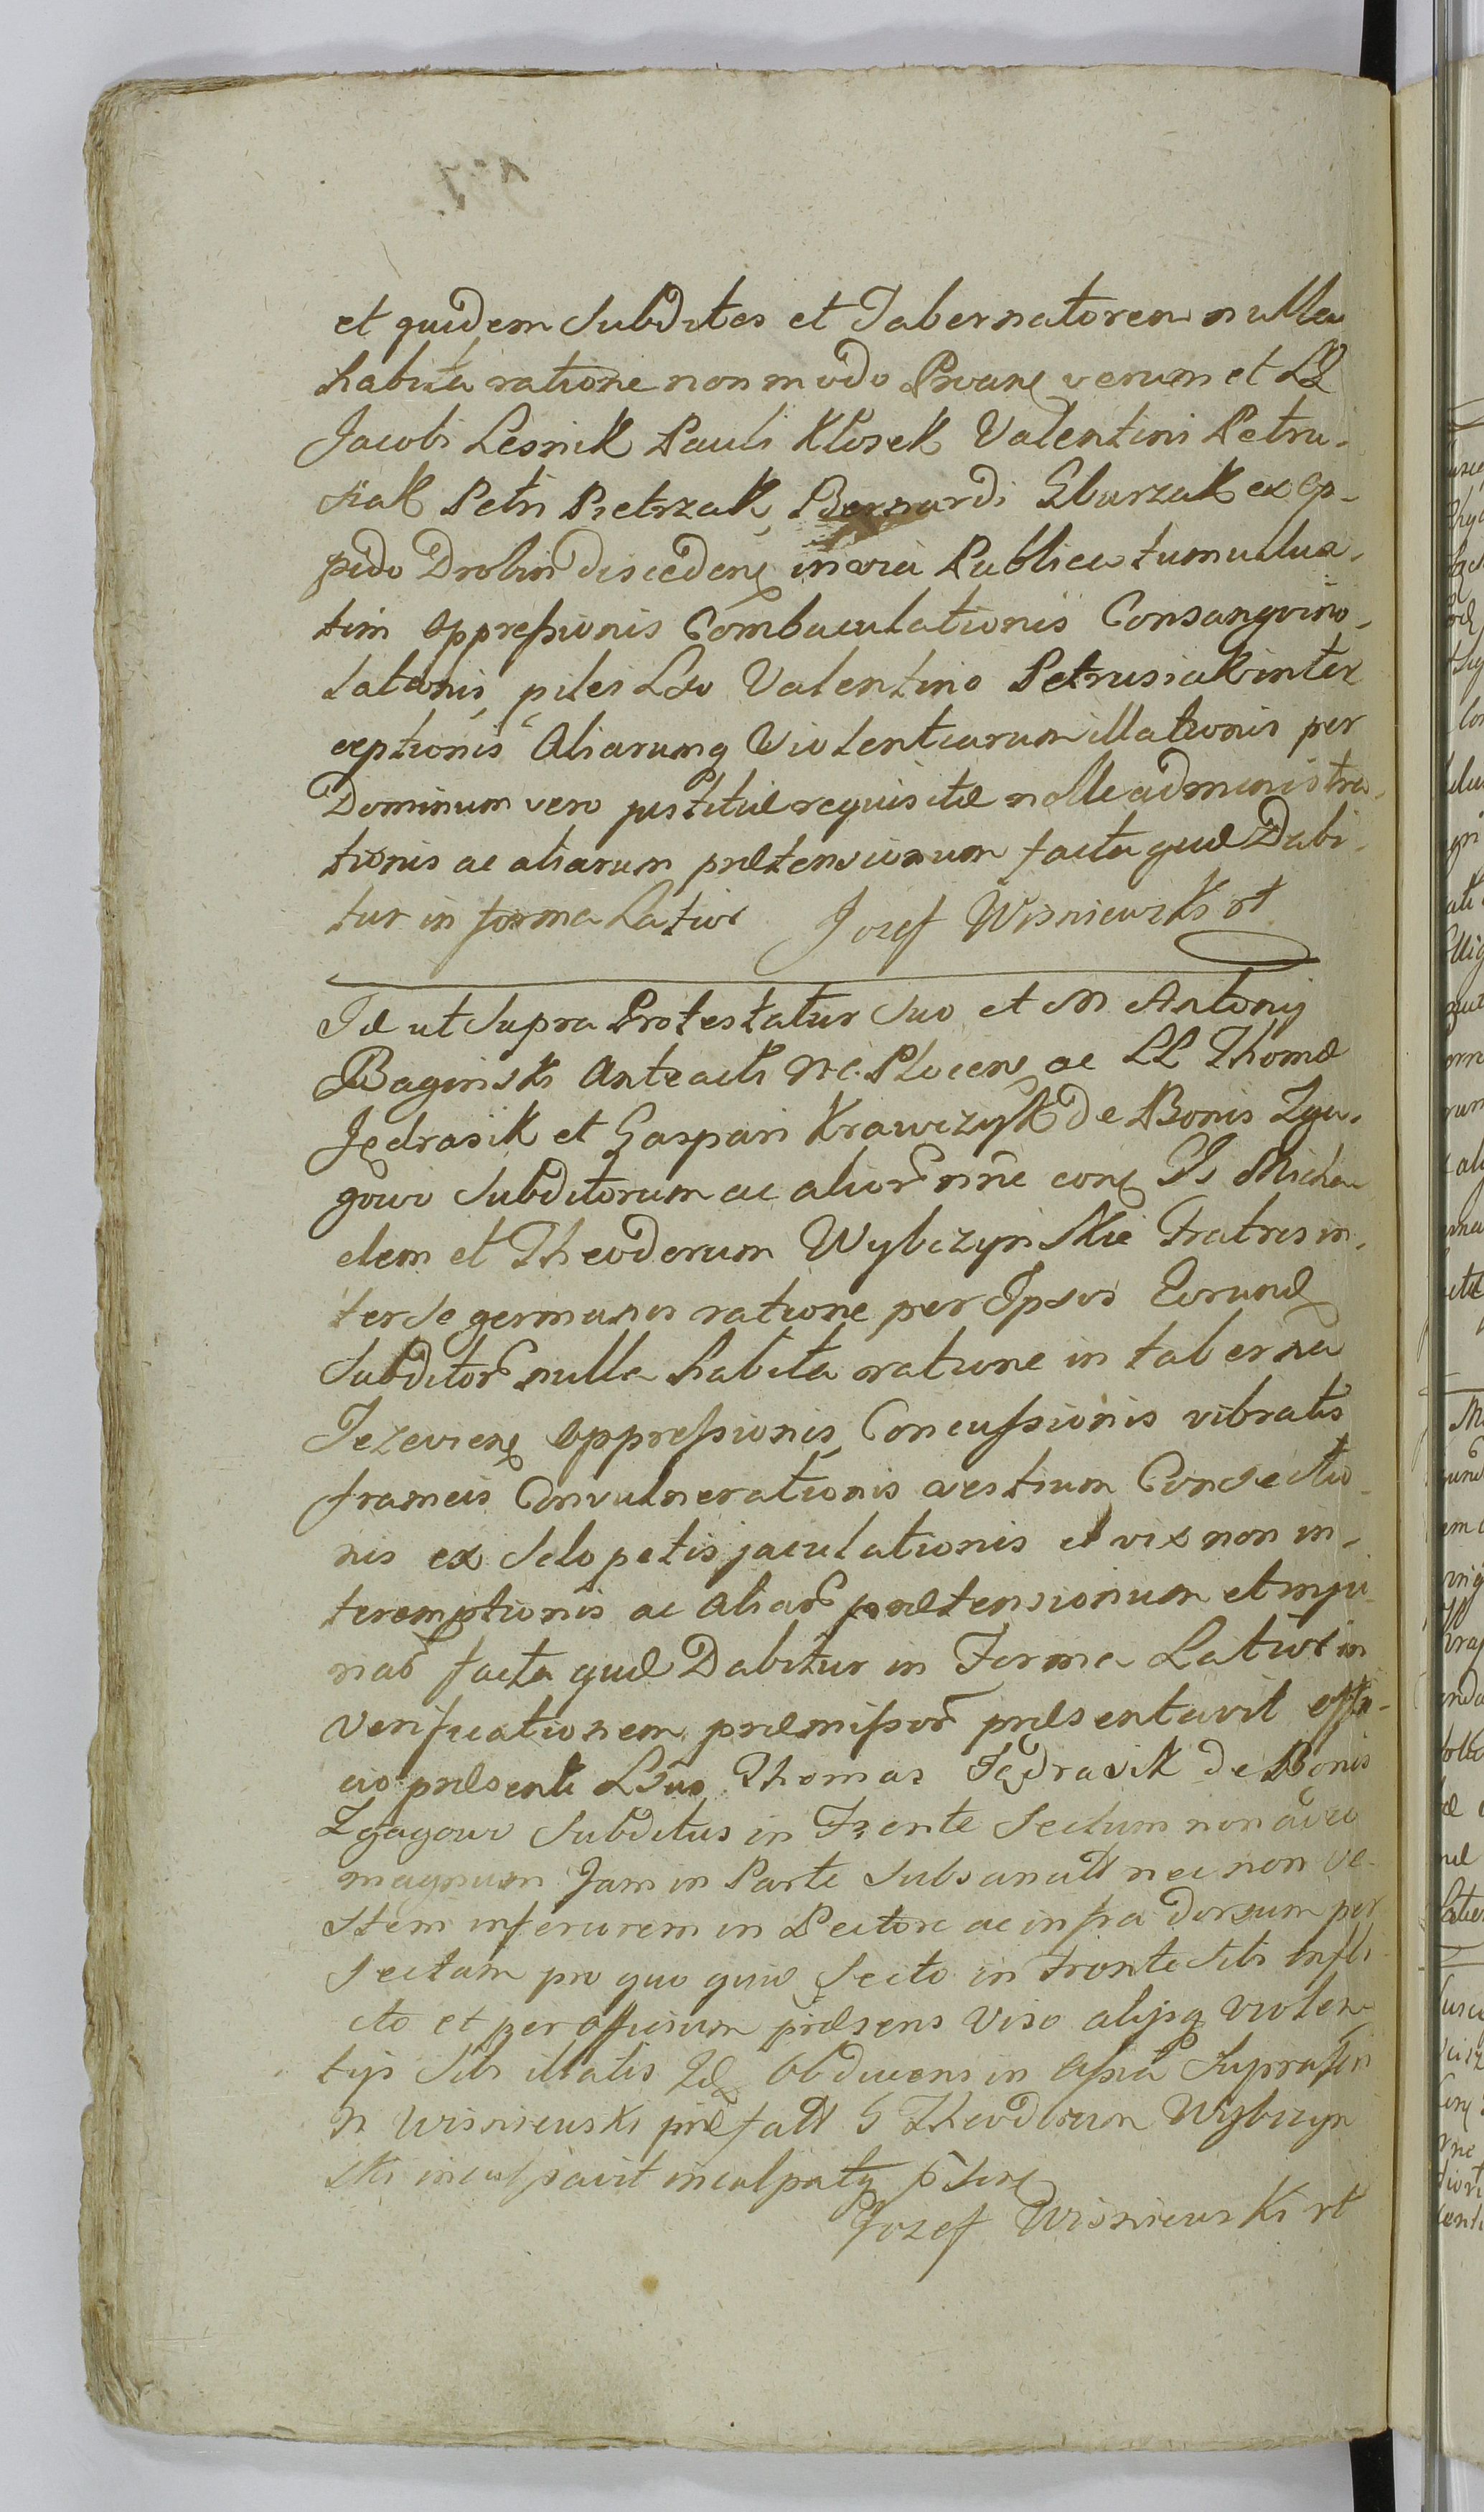 et quidem Subditos et Tabernatorem nulla
habita ratione non modo Proane verum et LL
Jacobi Lesnik Pauli Klosek Valentini Petru-
siak Petri Pietrzak, Bernardi Gburzak ex Op-
pido Drobin discedene in via Publica tumultua-
tim oppressionis Combaculationis Consangvino-
lationis, pilei Lso Valentino Petrusiak inter
ceptionis Aliarumq Violentiarum illationis per
Dominum vero justitiæ requisitæ nolle administra-
tionis ac aliarum prætensionum facta quæ Dabi-
tur in forma Latior Jozef Wisniewski rt
Id ut Supra Protestatur Suo et M Antonij
Baginski Anteacti N.C. Plocens ac LL Thomæ
Jędrasik et Gaspari Krawczyk de Bonis Zga-
gowo Subditorum ac alior nne cone Gs Micha
elem et Theodorum Wybczynskie Fratres in-
ter Se germanos ratione per Ipsos Eorund
Subditor nulla habita ratione in taberna
Jezeviene oppressionis, Concussionis vibratis
frameis Convulnerationis vestium Consectio-
nis ex Sclopetis jaculationis et vix non in-
teremptionis ac aliar prætensionum et inju-
riar facta quæ Dabitur in Forma Latior in
Verificationem præmissor præsentavit offi-
cio præsenti Lsus Thomas Jędrasik de Bonis
Zgagowo Subditus in Fronte Sectum non adeo
magnum Jam in Parte Subsanatt nec non ve-
stem inferiorem in Pectore ac infra dorsum per
Sectam pro quo quid Secto in Fronte Sibi infli-
cto et per officium præsens Viso alijsq violen
tijs Sibi illatis Id Obducens in
N Wisniewski præfatt G Theodorum Wybczyn
ski inculpavit inculpatq
Jozef Wisniewski rt